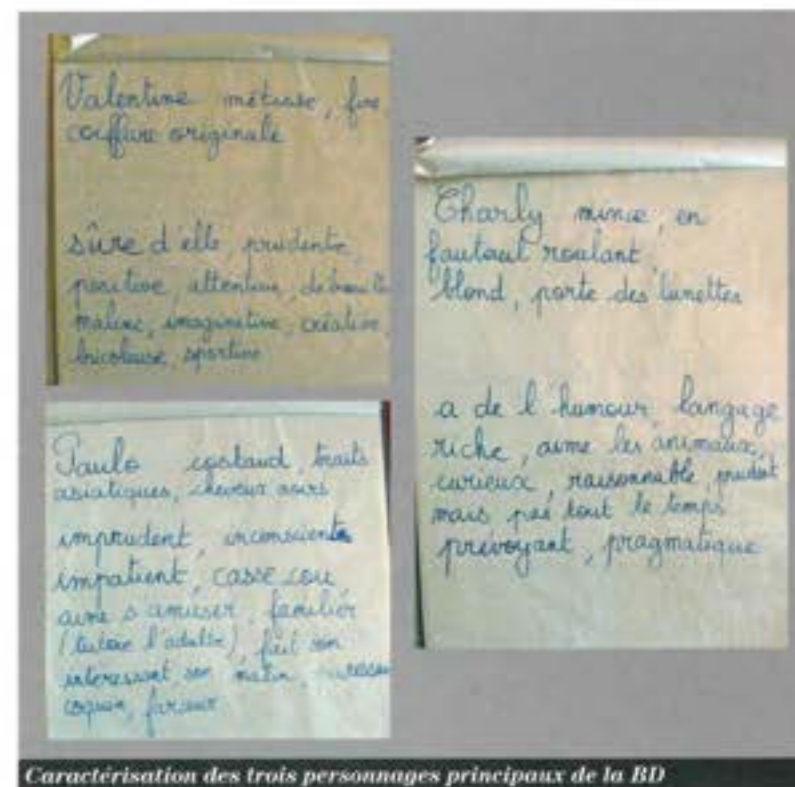 Valentine métisse, fine
coiffure originale
sûre d'elle, prudente,
positive, attentive,
maline, imaginative, créative,
bricoleuse, sportive
Paulo costaud, traits
asiatiques, cheveux noirs
imprudent, inconscient
impatient, casse cou
aime s'amuser, familier
(tutoie l'adulte), fait son
intéressant, son malin,
coquin, farceur
Charly mince, en
fauteuil roulant,
blond, porte des lunettes
a de l'humour, langage
riche, aime les animaux,
curieux, raisonnable, prudent
mais pas tout le temps
prévoyant, pragmatique
Caractérisation des trois personnages principaux de la BD